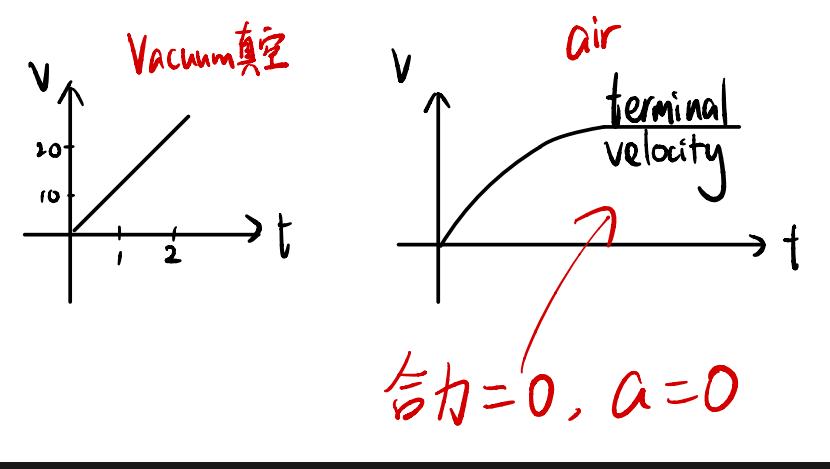 Vacuum真空
V
20
10
1
2
t
air
V
terminal
velocity
t
合力=0, a=0